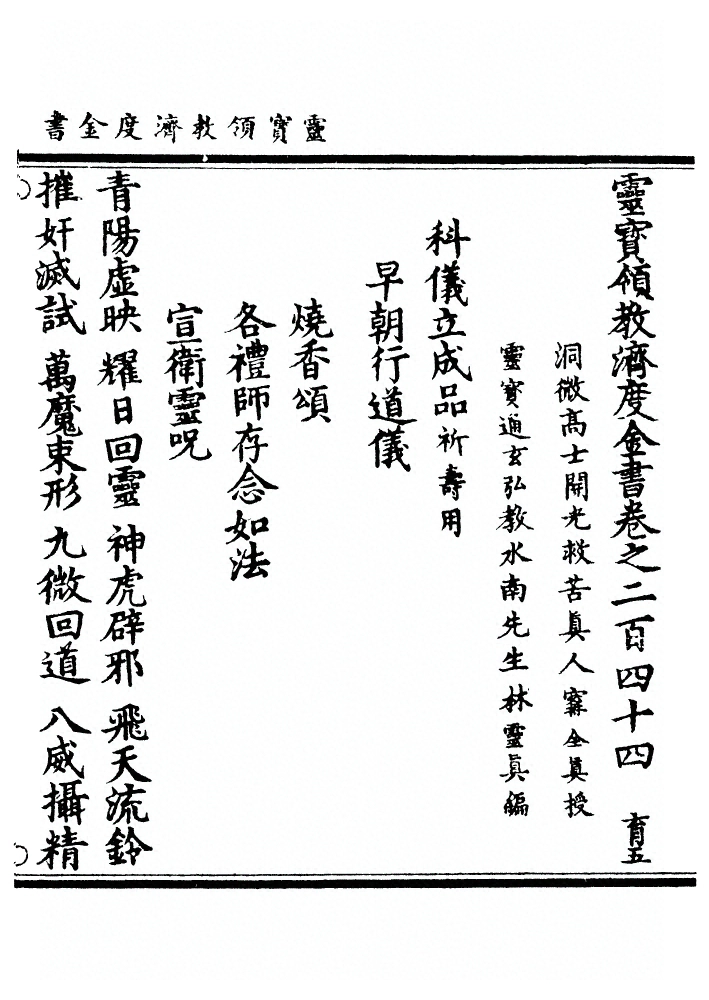 靈寶領教濟度金書
靈寶領教濟度金書卷之二百四十四 育五
洞微高士開光救苦眞人甯全眞授
靈寶通玄弘教水南先生林靈眞編
科儀立成品祈壽用
早朝行道儀
燒香頌
各禮師存念如法
宣衛靈呪
青陽虛映 耀日回靈 神虎辟邪 飛天流鈴
摧奸滅試 萬魔束形 九微回道 八威攝精